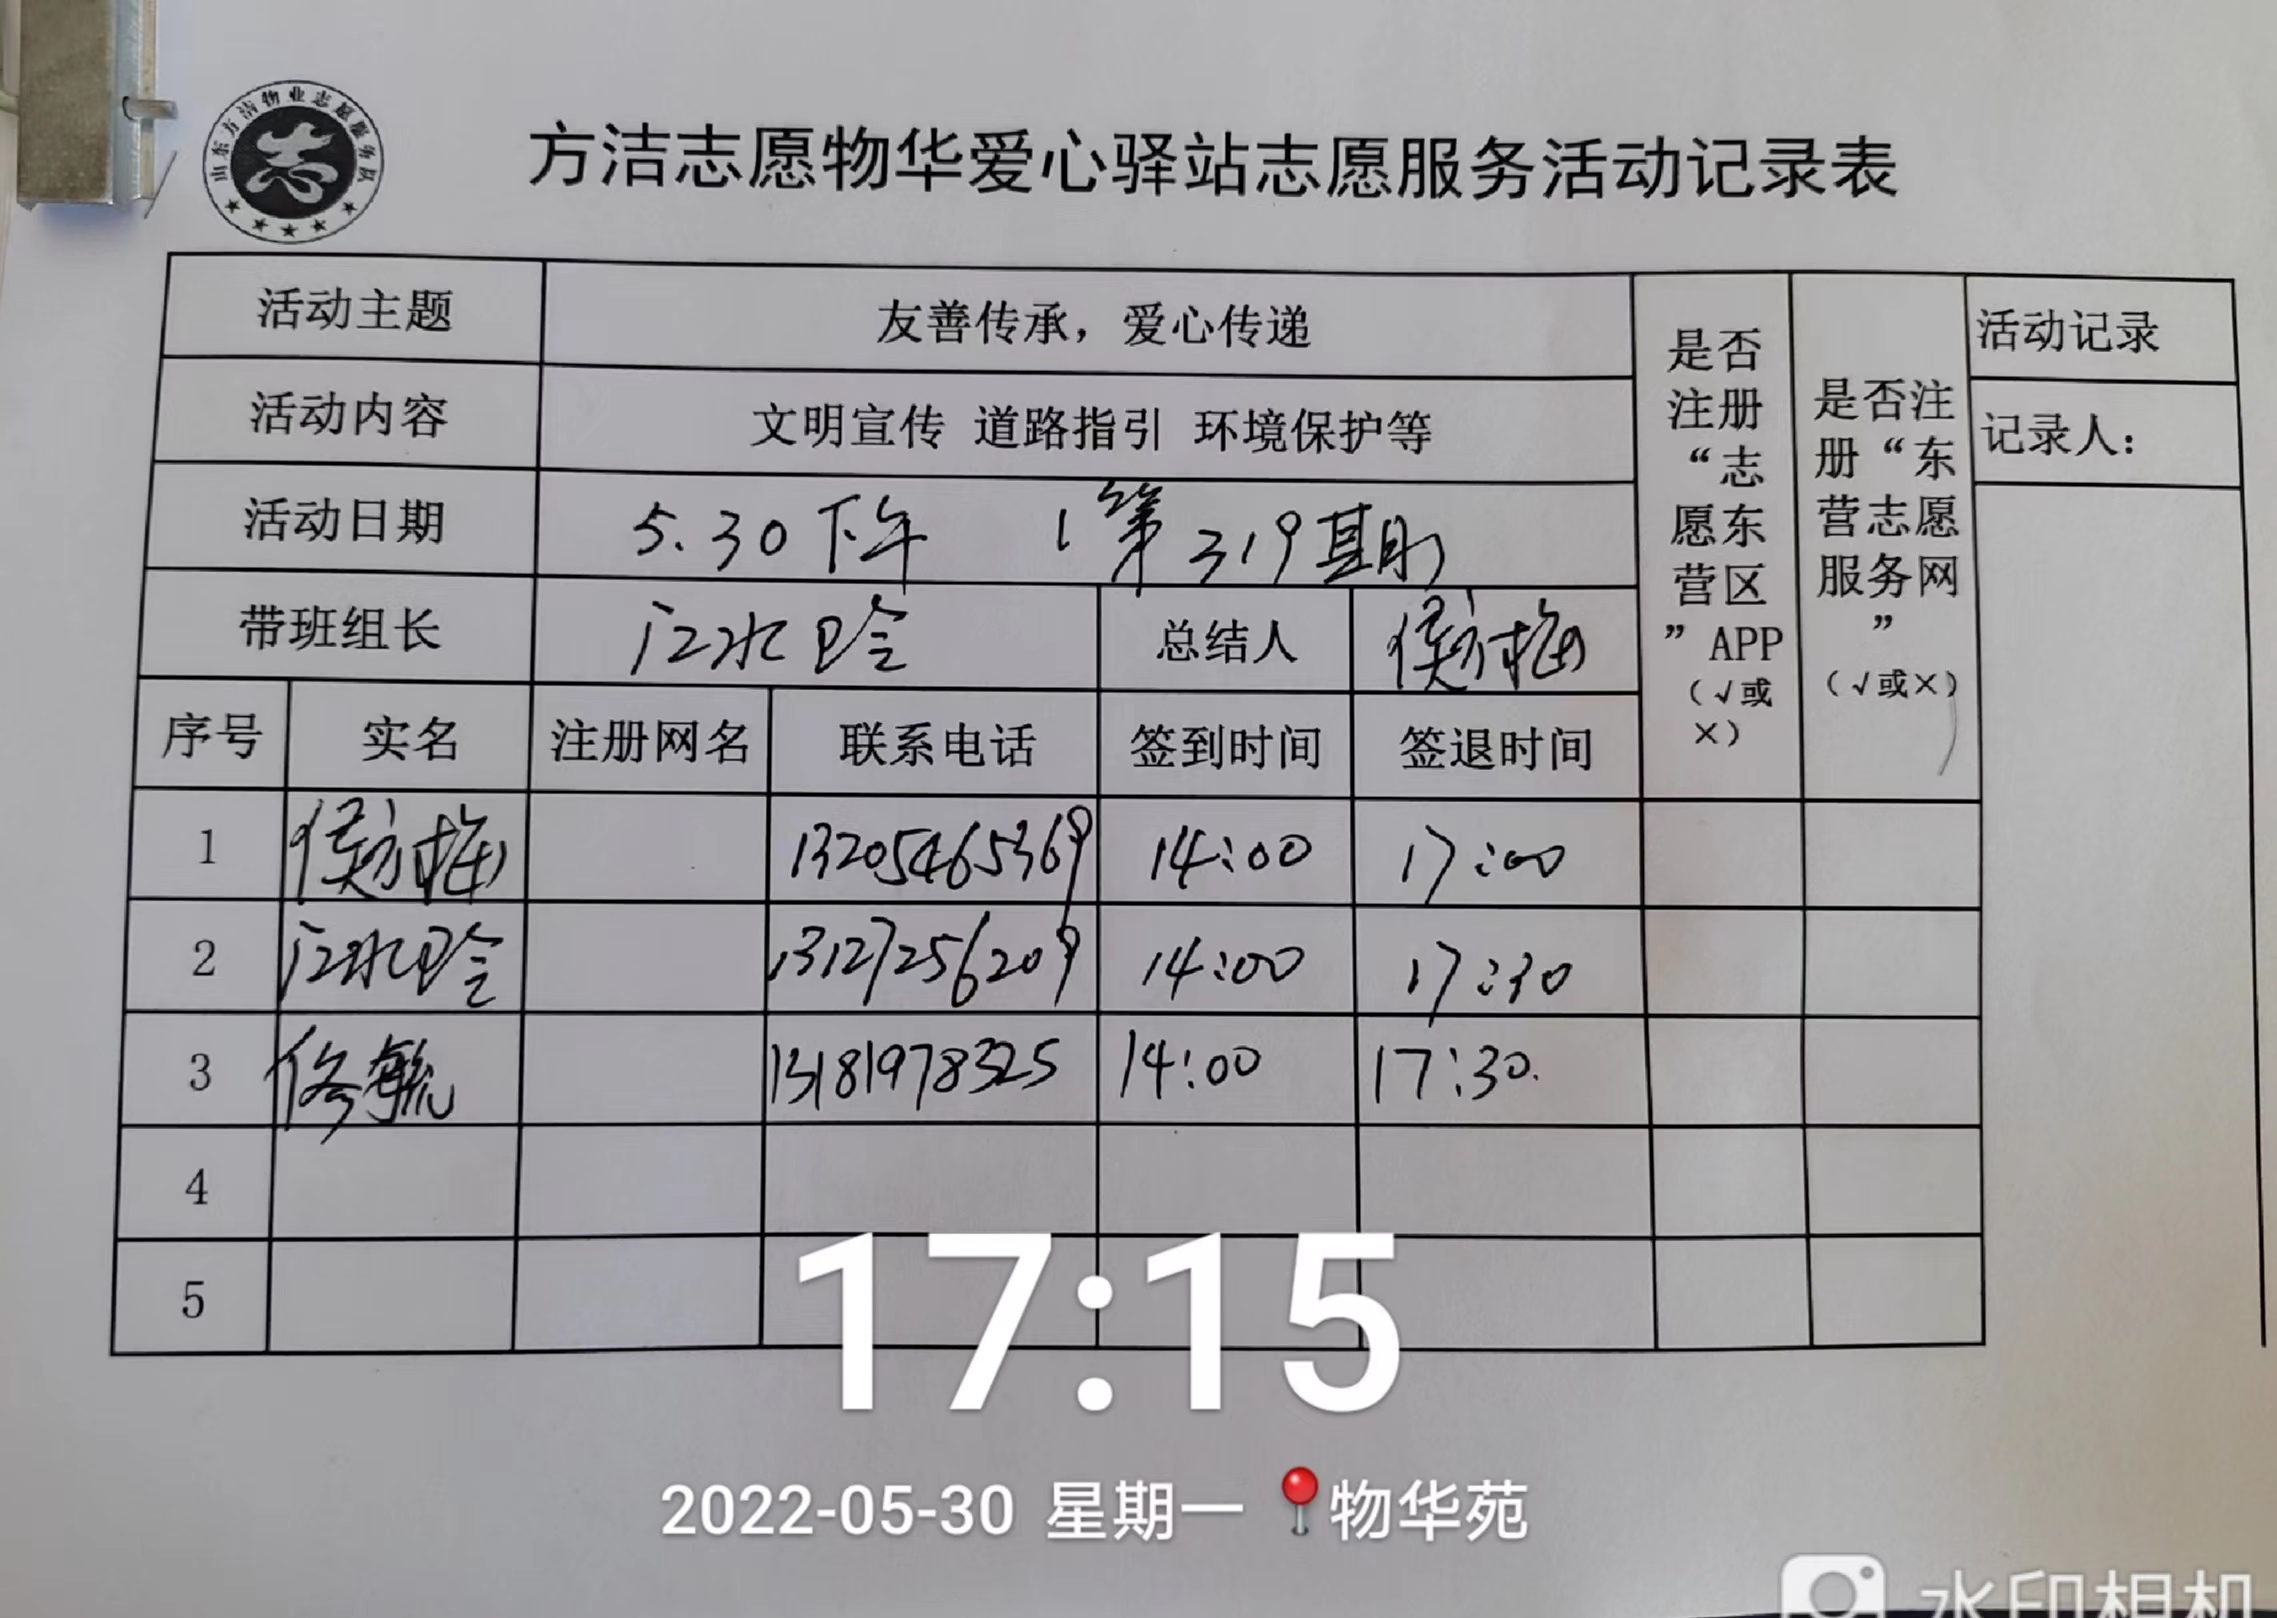 山东方洁物业志愿服务队
方洁志愿物华爱心驿站志愿服务活动记录表
活动主题 友善传承，爱心传递
活动内容 文明宣传 道路指引 环境保护等
活动日期 5.30下午 (第319期)
带班组长 江冰晗 总结人
序号 实名 注册网名 联系电话 签到时间 签退时间
是否注册“志愿东营区”APP（√或×）
是否注册“东营志愿服务网”（√或×）
活动记录
记录人：
1 13205465369 14:00 17:00
2 江冰晗 13127256209 14:00 17:30
3 佟毓 13181978325 14:00 17:30.
4
5
17:15
2022-05-30 星期一 物华苑
水印相机